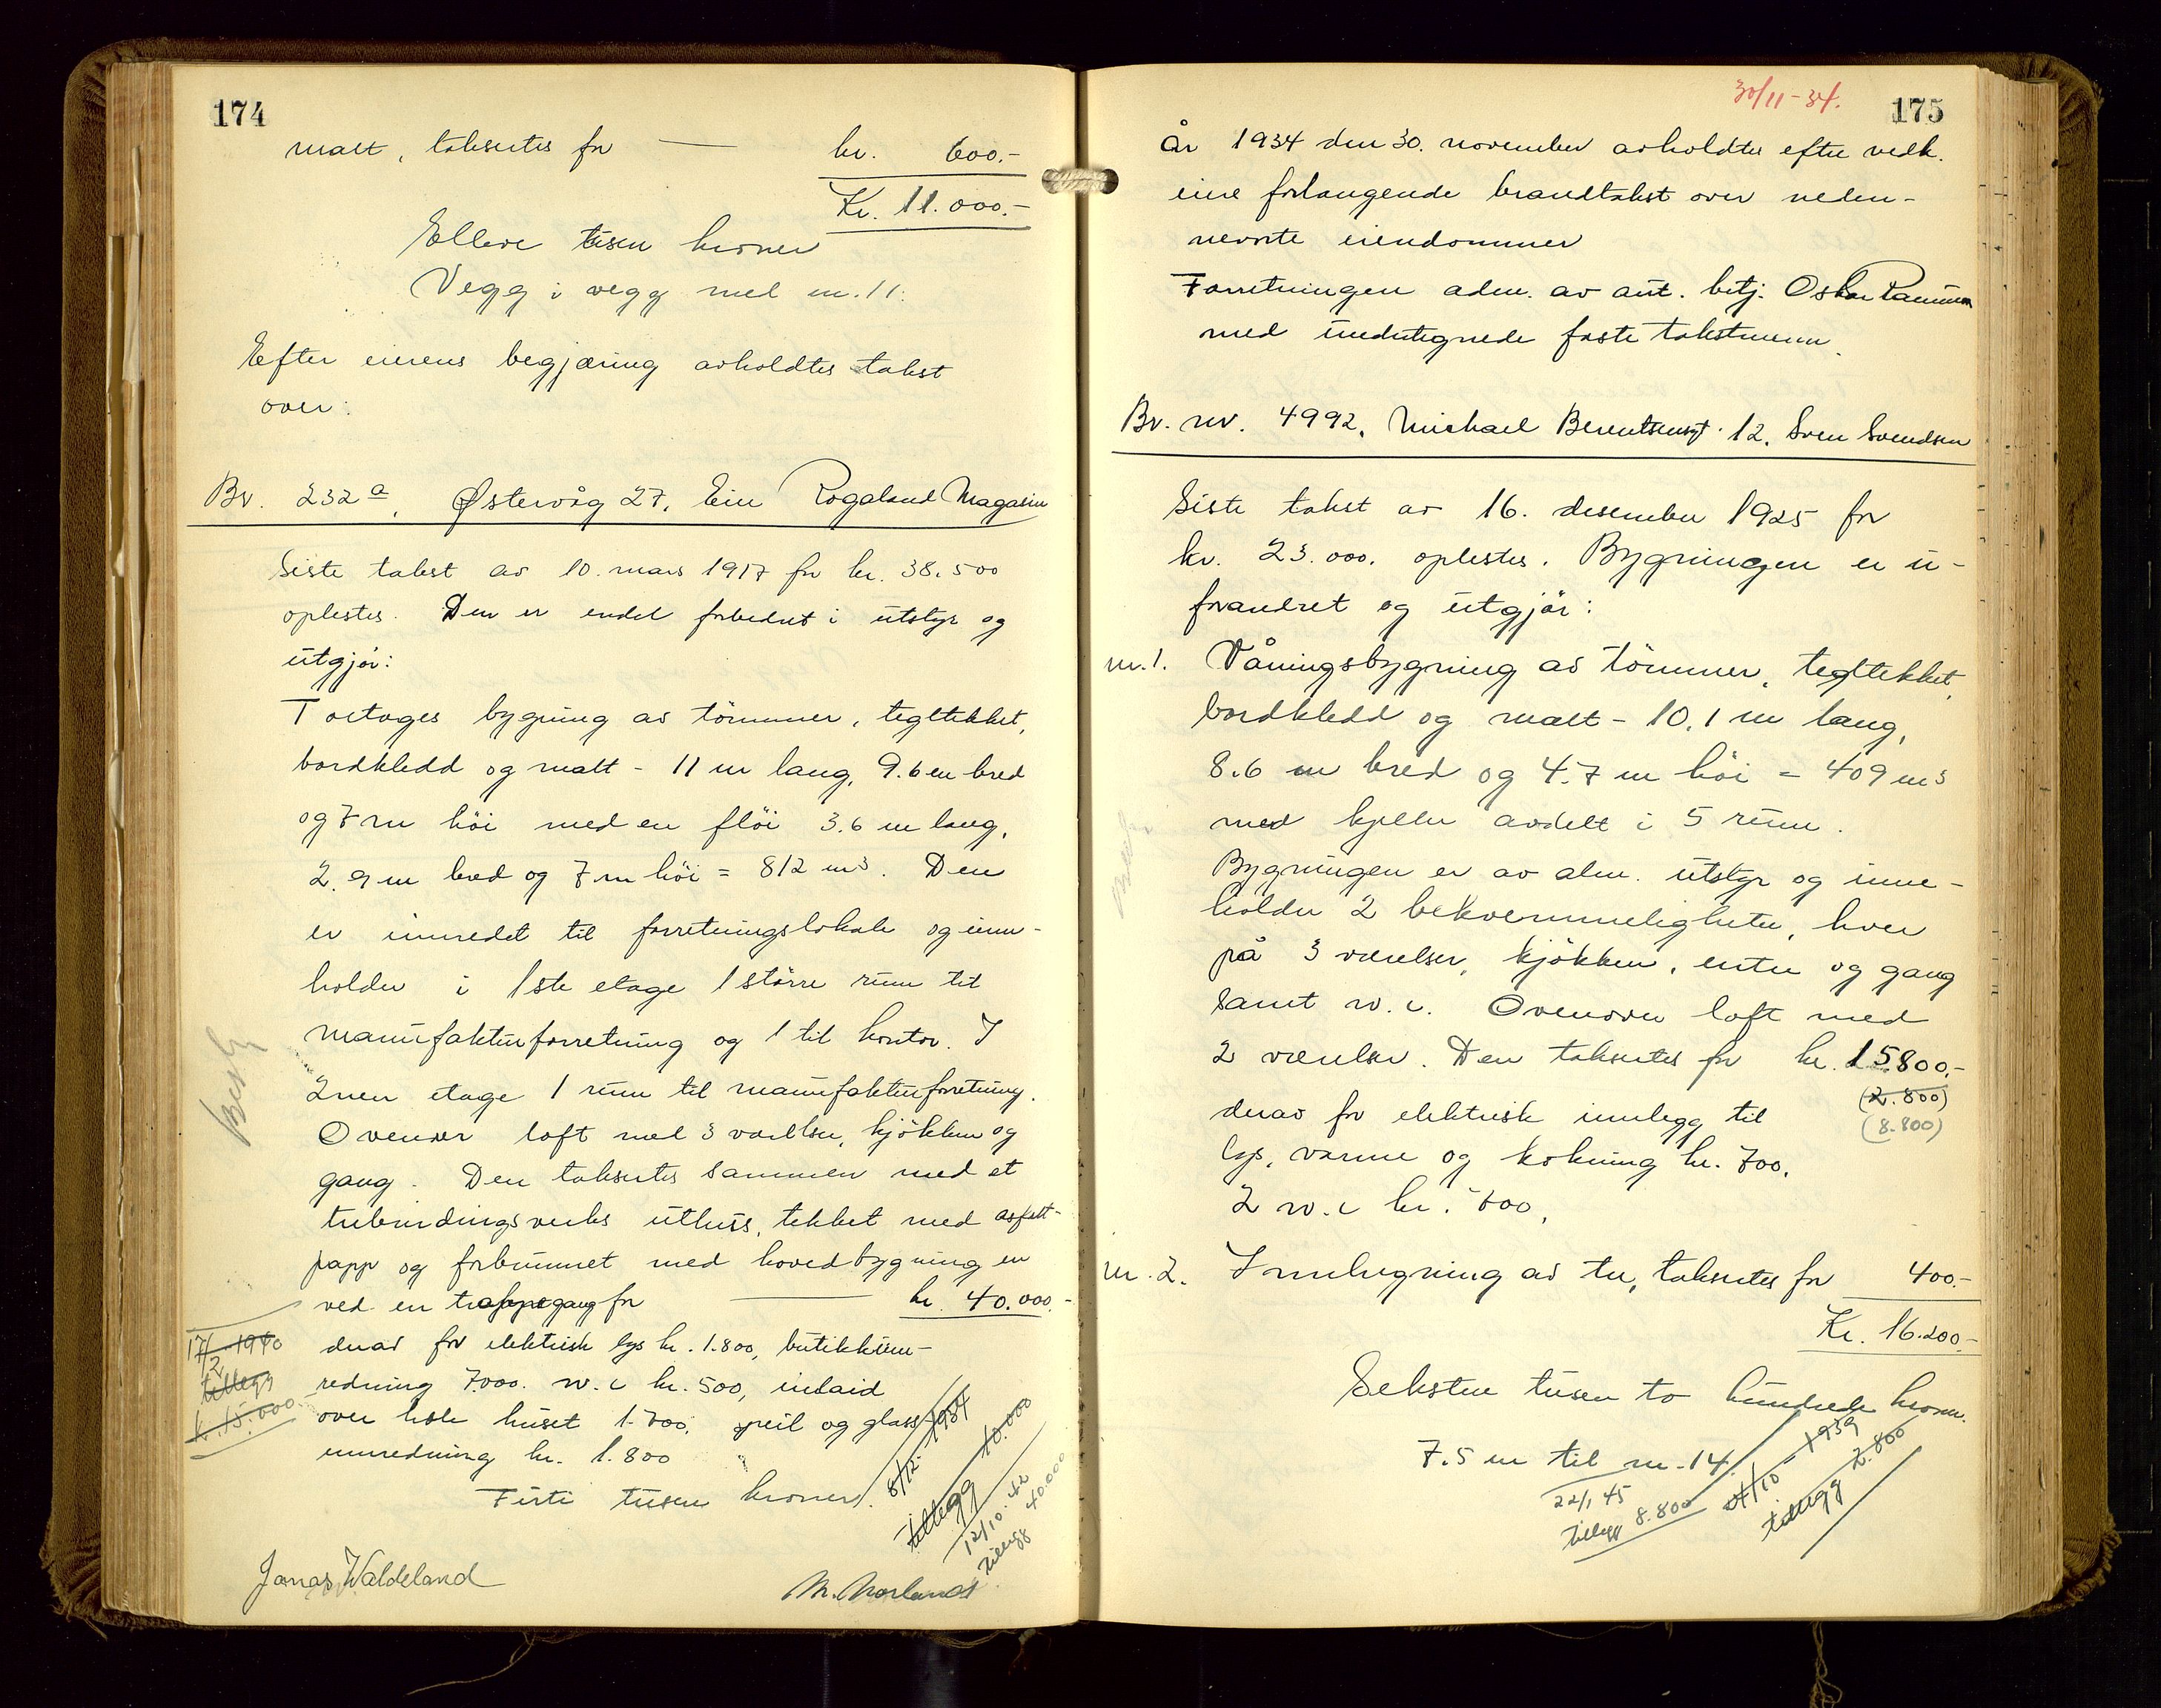 174
malt, takseres for — kr. 600.-
Kr. 11.000.-
Elleve tusen kroner
Vegg i vegg med m. 11.
Efter eierens begjæring avholdtes takst
over:
Br. 232a, Østervåg 27. Eier Rogaland Magasin
Siste takst av 10. mars 1917 for kr. 38.500
oplestes. Den er endel forbedret i utstyr og
utgjør:
Toetages bygning av tömmer, tegltekket,
bordkledd og malt - 11 m lang, 9.6 m bred
og 7 m höi med en flöi 3.6 m lang,
2.9 m bred og 7 m höi = 812 m³. Den
er innredet til forretningslokale og inne-
holder i 1ste etage 1 större rum til
manufakturforretning og 1 til kontor. I
2nen etage 1 rum til manufakturforretning.
Ovenover loft med 3 værelser, kjökken og
gang. Den takseres sammen med et
trebindingsverks uthus, tekket med asfalt-
papp og forbunnet med hovedbygningen
ved en trappegang for — kr. 40.000.-
derav for elektrisk lys kr. 1.800, butikkinn-
redning 7.000. w.c kr. 500, inlaid
over hele huset 1.700, speil og glass-
innredning kr. 1.800
Firti tusen kroner.
17/2 1940
tillegg
k. 15.000
8/12 - 1937
tillegg 10.000
12/10.42
tillegg 40.000
Jonas Waldeland
M. Norland
30/11-34.
175
År 1934 den 30. november avholdtes efter vedk.
eiere forlangende brandtakst over neden-
nevnte eiendommer
Forretningen adm. av aut. betj. Oskar
med undertegnede faste takstmenn.
Br. nr. 4992, Michael Berentsensgt. 12, Sven Svendsen
Siste takst av 16. desember 1925 for
kr. 23.000. oplestes. Bygningen er u-
forandret og utgjör:
m. 1. Våningsbygning av tömmer, tegltekket,
bordkledd og malt - 10,1 m lang,
8.6 m bred og 4.7 m höi = 409 m³
med kjeller avdelt i 5 rum.
Bygningen er av alm. utstyr og inne-
holder 2 bekvemmeligheter, hver
på 3 værelser, kjökken, entre og gang
samt w.c. Ovenover loft med
2 værelser. Den takseres for kr. 15.800.-
(2.800)
derav for elektrisk innlegg til
(8.800)
lys, varme og kokning kr. 700,
2 w.c kr. 600,
m. 2. Innhegning av tre, takseres for 400.-
Kr. 16.200.-
Seksten tusen to hundrede kroner.
7.5 m til m. 14.
22/1 45
tillegg 8.800
1939
tillegg 2.800